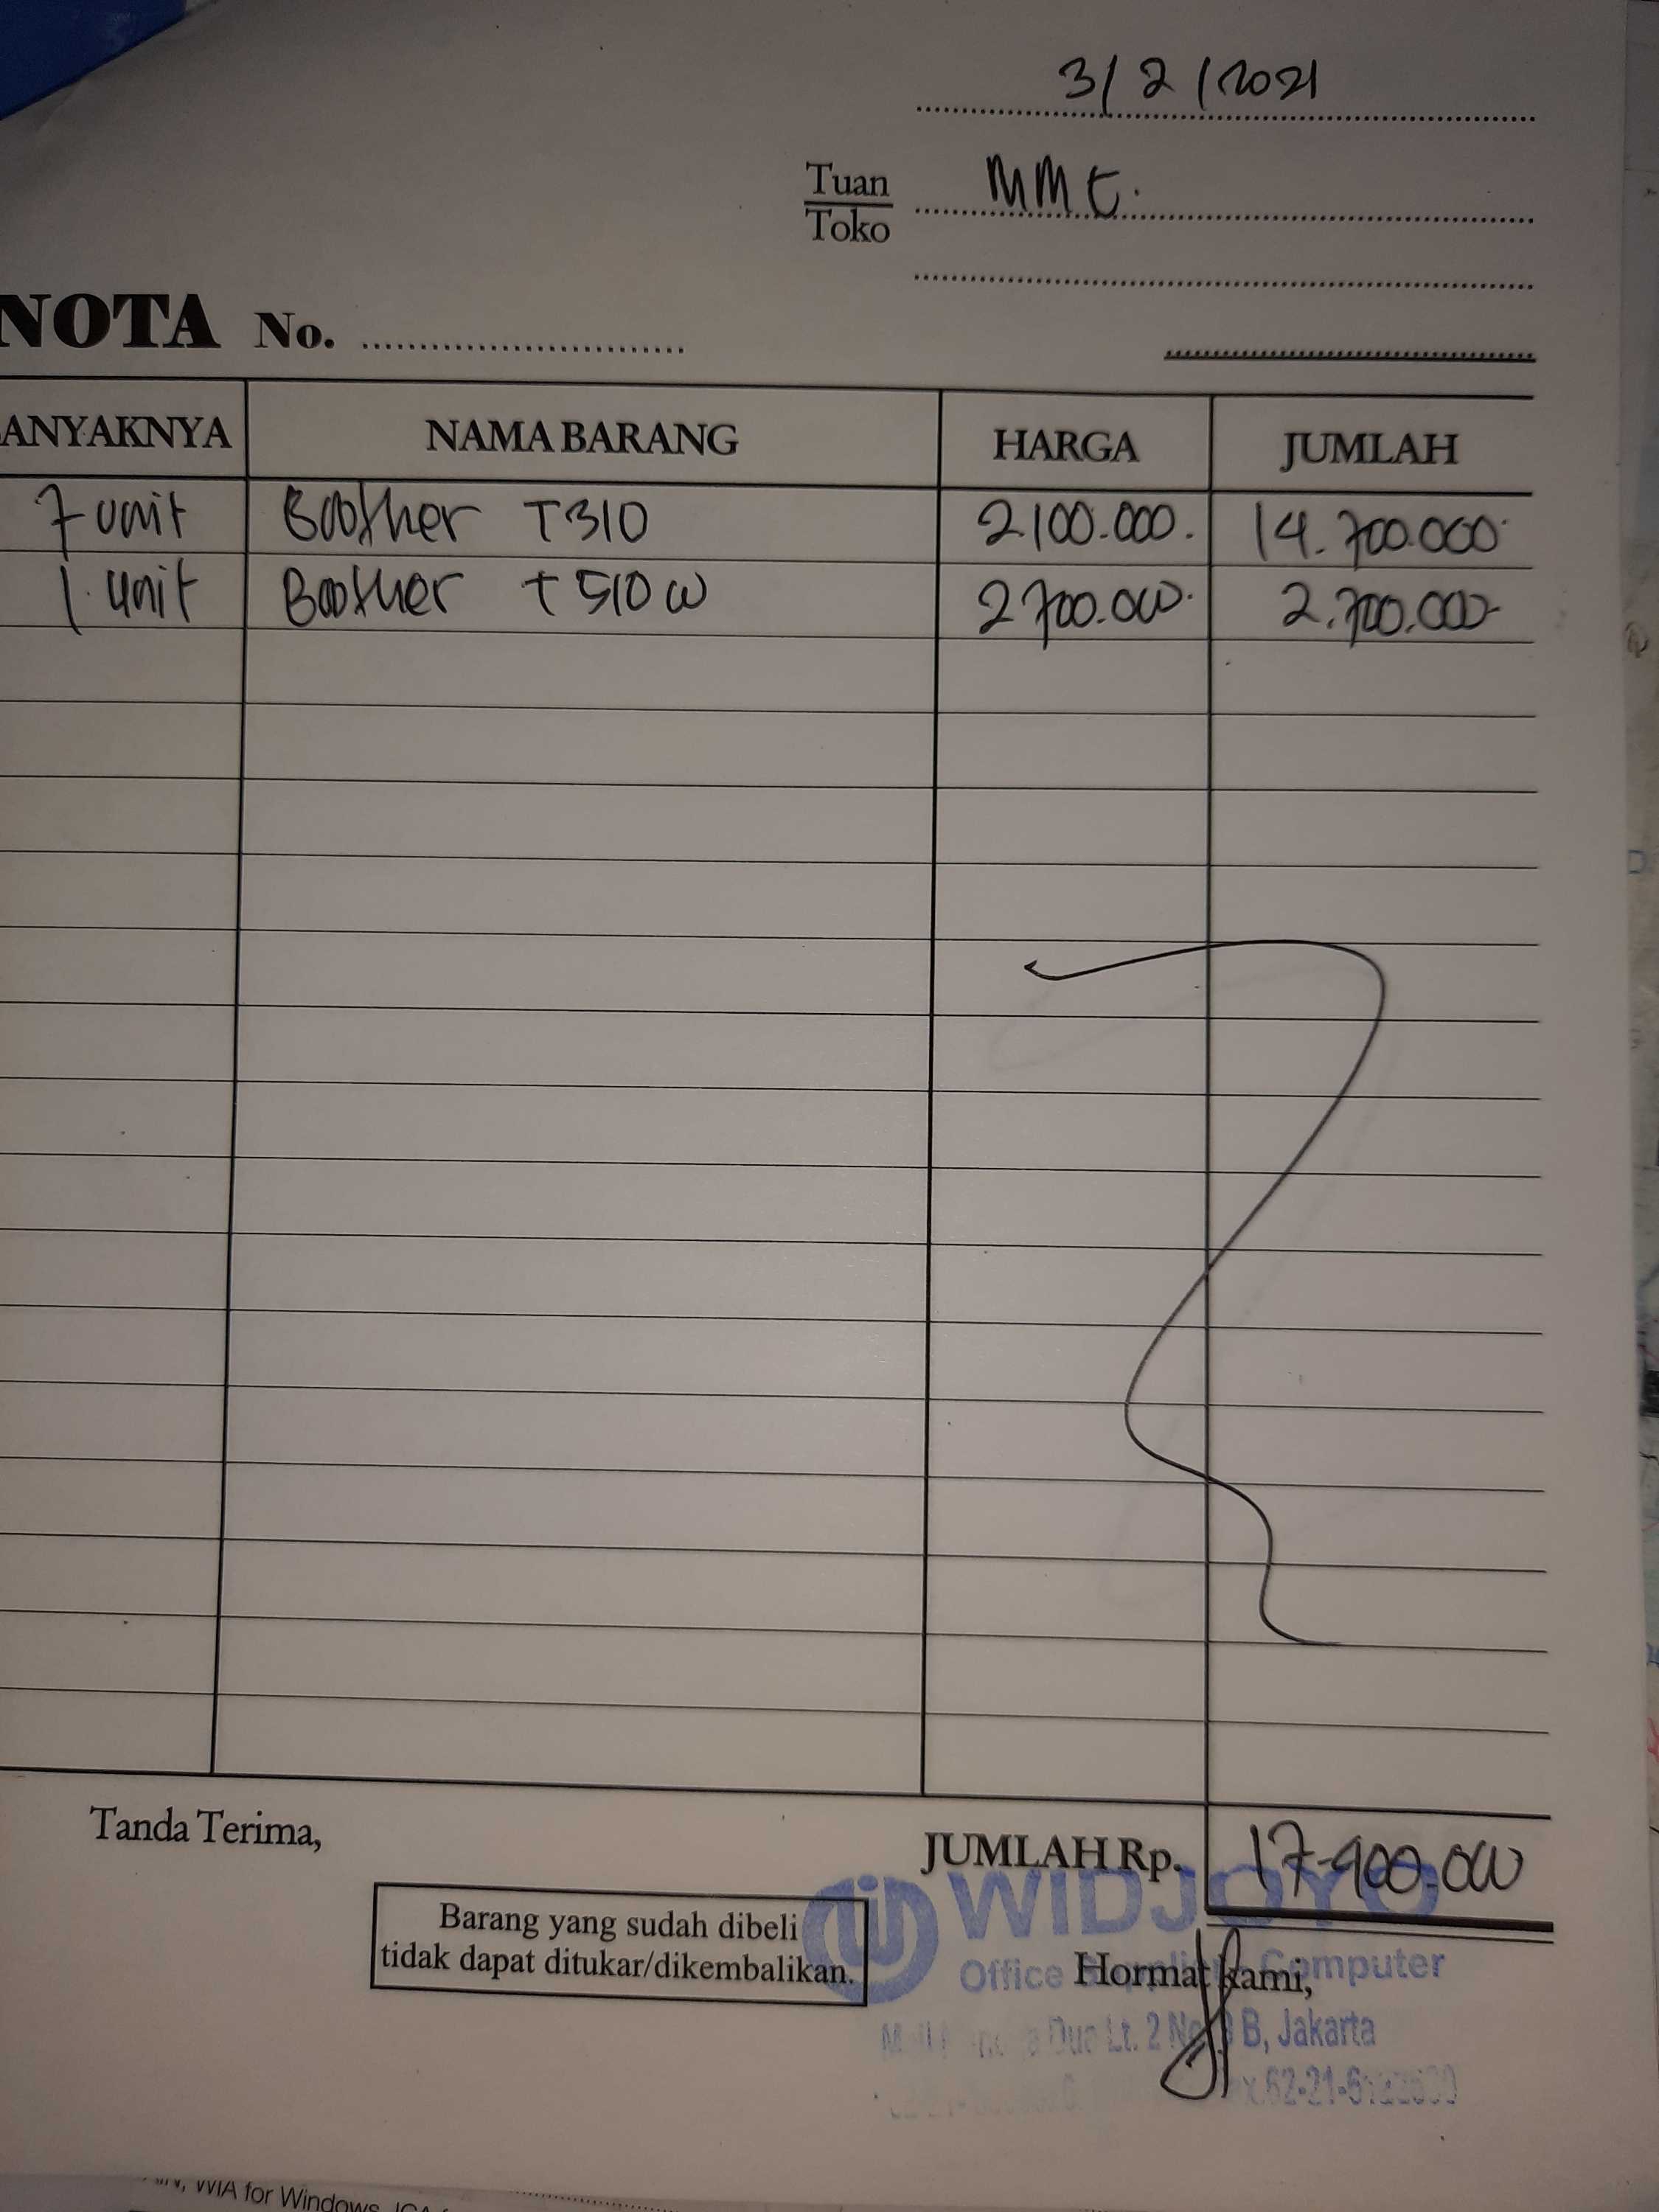 3/2/2021
Tuan
Toko
MMC.
NOTA No.
ANYAKNYA NAMA BARANG HARGA JUMLAH
7 unit Brother T310 2100.000. 14.700.000
1. unit Brother T510W 2700.000. 2.700.000
Tanda Terima,
JUMLAH Rp. 17.400.000
WIDJOYO
Barang yang sudah dibeli
tidak dapat ditukar/dikembalikan.
Office Computer
Hormat kami,
Dua Lt. 2 B, Jakarta
WIA for Windows